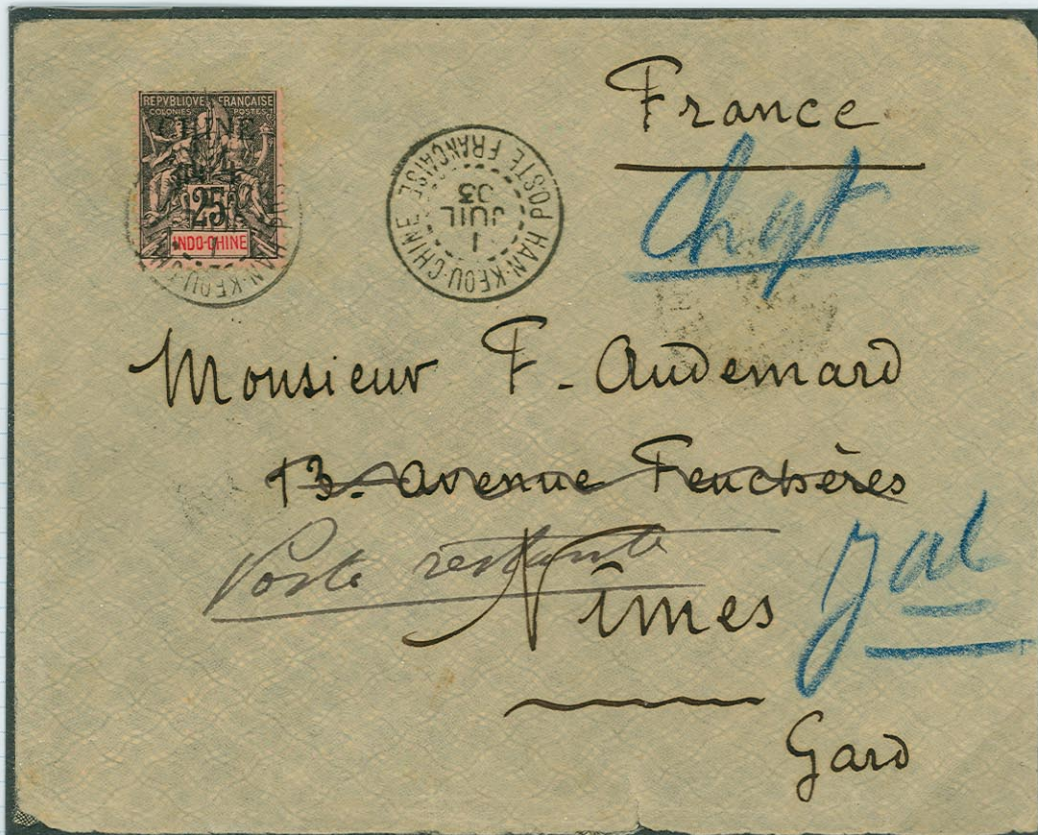 France
REPVBLIQVE FRANÇAISE
COLONIES POSTES
CHINE
25
INDO-CHINE
HAN-KEOU-CHINE
POSTE FRANÇAISE
1
JUIL
03
Chgt
Monsieur F. Audemard
13. avenue Feuchères
Poste restante
Nîmes
Gard